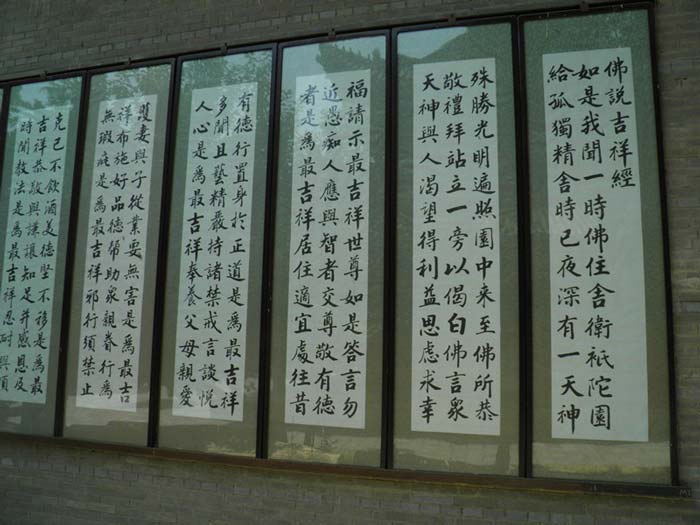 佛說吉祥經
如是我聞一時佛住舍衛祇陀園
給孤獨精舍時已夜深有一天神
殊勝光明遍照園中来至佛所恭
敬禮拜站立一旁以偈白佛言衆
天神與人渴望得利益思慮求幸
福請示最吉祥世尊如是答言勿
近愚痴人應與智者交尊敬有德
者是為最吉祥居住適宜處往昔
有德行置身於正道是為最吉祥
多聞且藝精嚴持諸禁戒言談悅
人心是為最吉祥奉養父母親愛
護妻與子從業要無害是為最吉
祥布施好品德幫助衆親眷行為
無瑕疵是為最吉祥邪行須禁止
克己不飲酒美德堅不移是為最
吉祥恭敬與謙讓知足并感恩及
時聞教法是為最吉祥忍耐與順